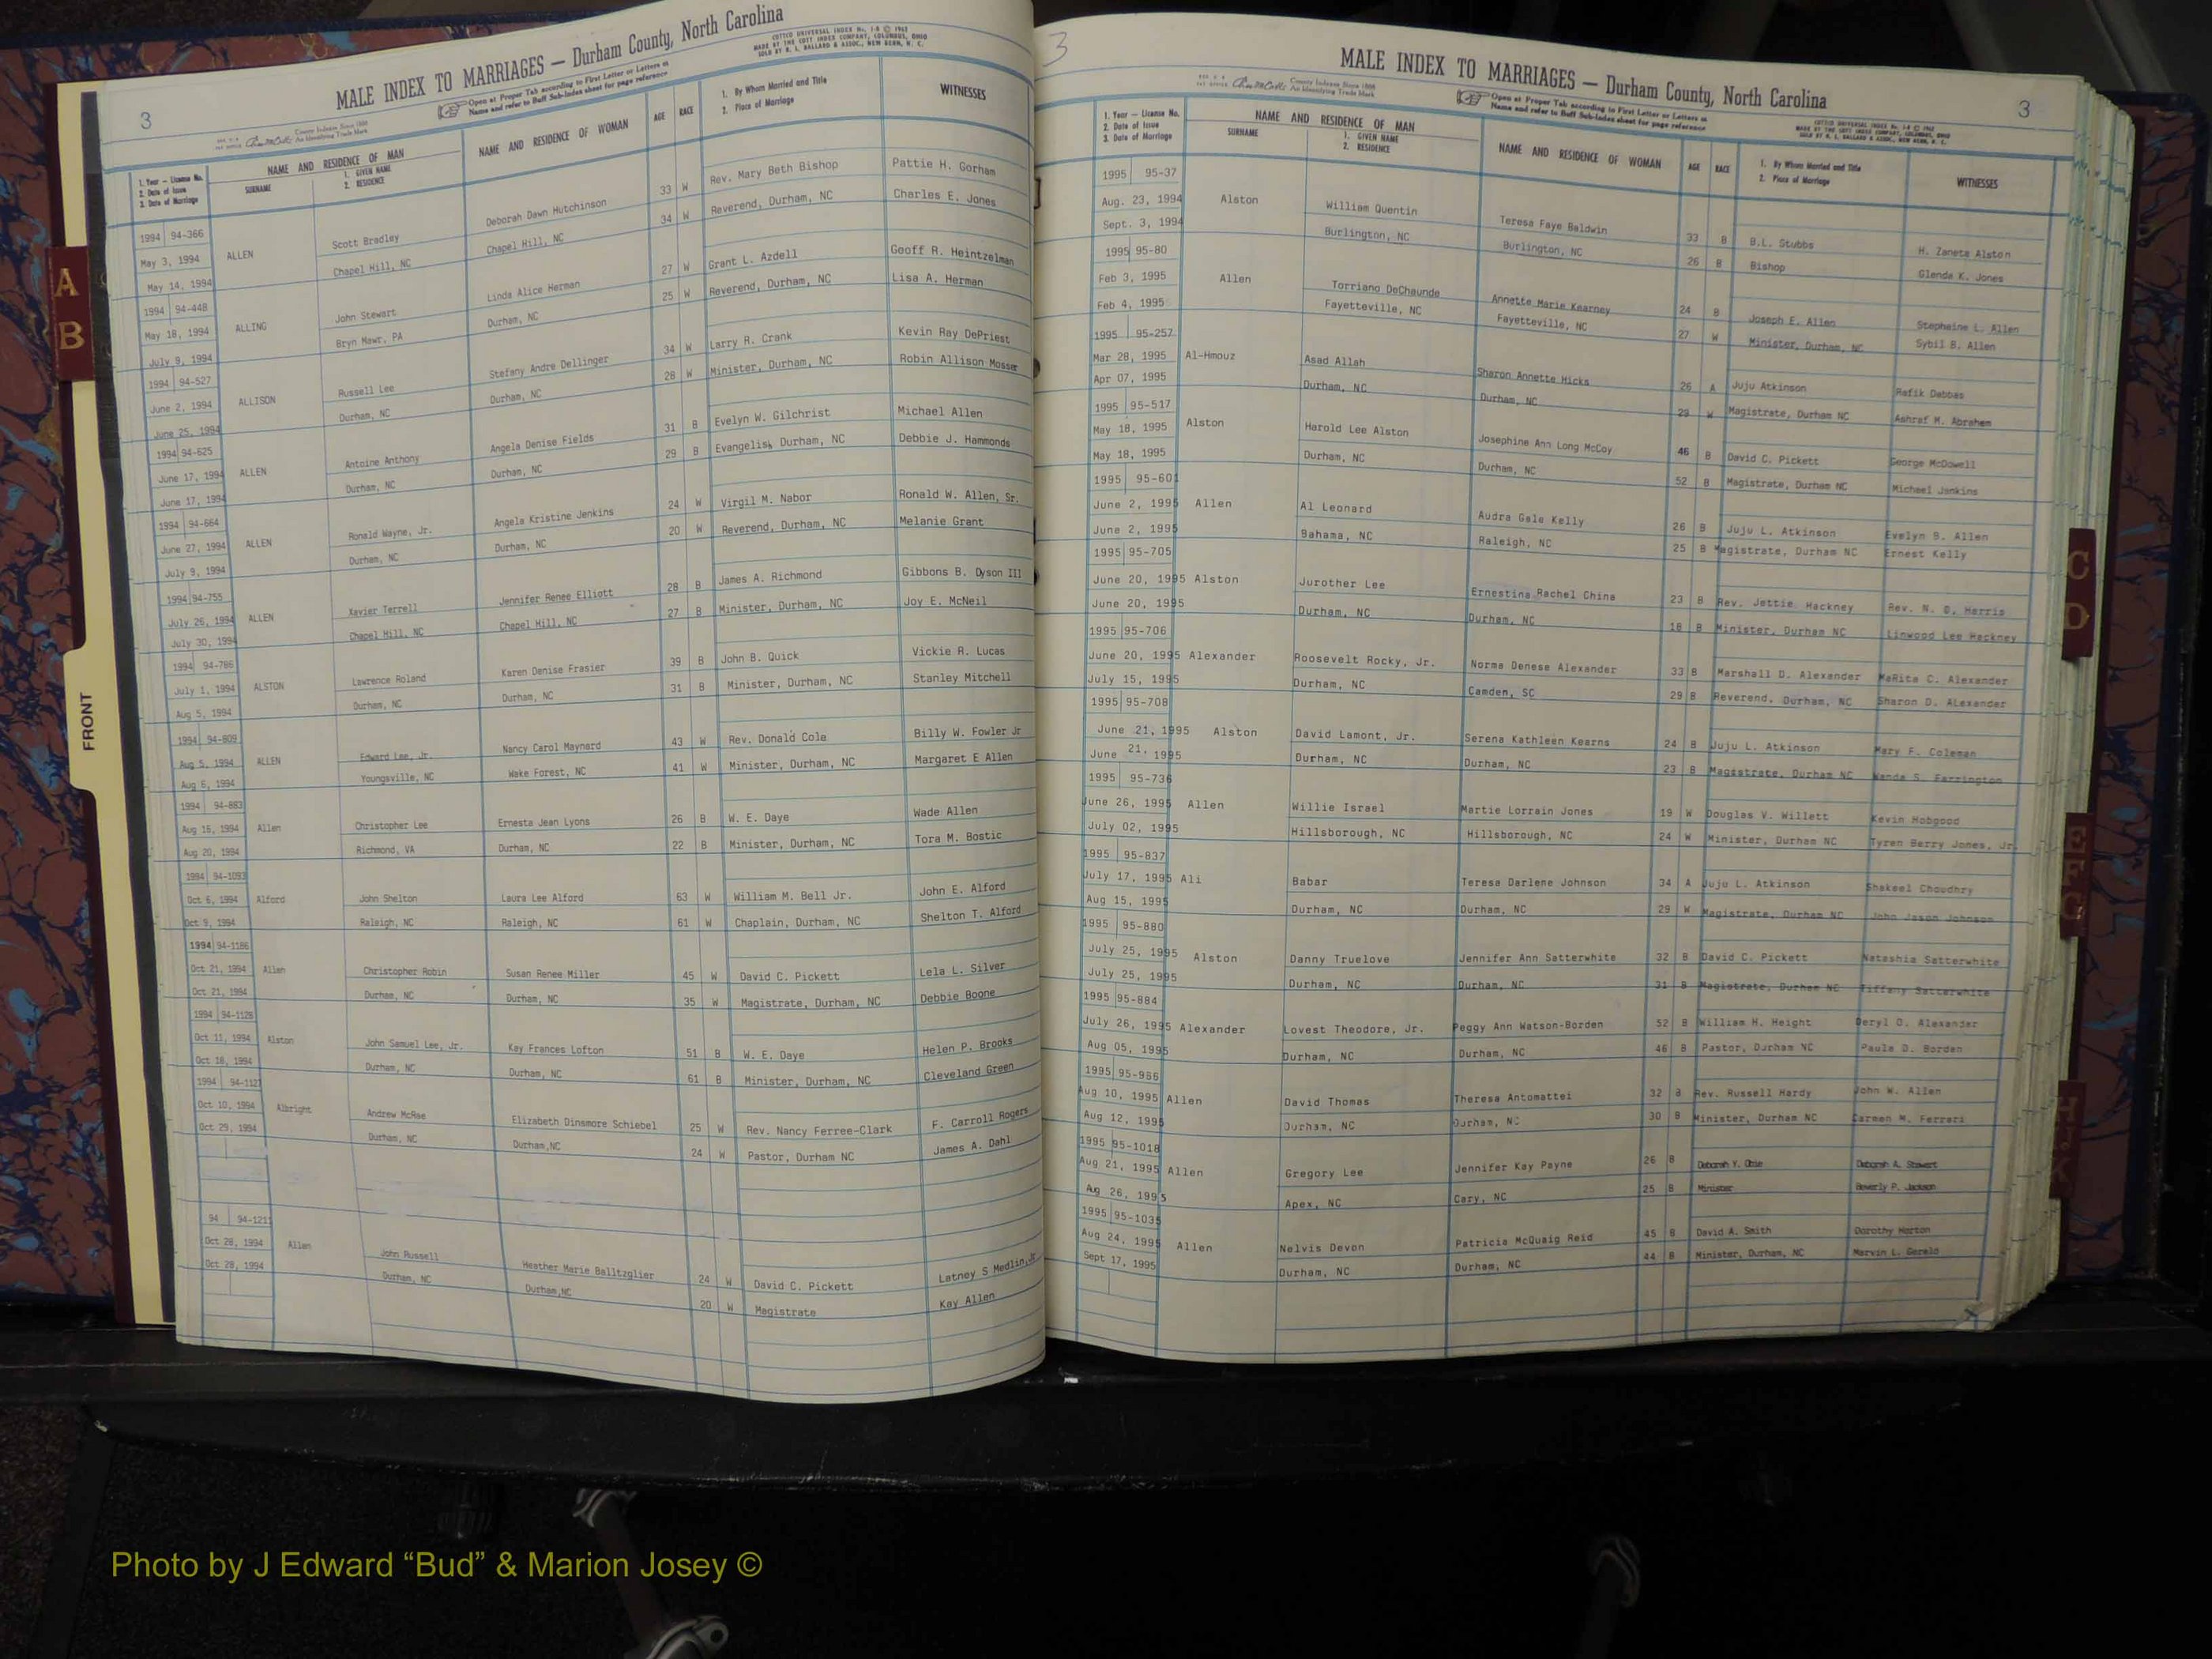 3
MALE INDEX TO MARRIAGES — Durham County, North Carolina
COTTCO UNIVERSAL INDEX No. 1-8 © 1962
MADE BY THE COTT INDEX COMPANY, COLUMBUS, OHIO
SOLD BY R. L. BALLARD & ASSOC., NEW BERN, N. C.
Open at Proper Tab according to First Letter or Letters of
Name and refer to Buff Sub-Index sheet for page reference
County Indexes Since 1888
An Identifying Trade Mark
1. Year — License No.
2. Date of Issue
3. Date of Marriage
NAME AND RESIDENCE OF MAN
SURNAME
1. GIVEN NAME
2. RESIDENCE
NAME AND RESIDENCE OF WOMAN
AGE RACE
1. By Whom Married and Title
2. Place of Marriage
WITNESSES
1994 94-366 Scott Bradley Deborah Dawn Hutchinson 33 W Rev. Mary Beth Bishop Pattie H. Gorham
May 3, 1994 ALLEN Chapel Hill, NC Chapel Hill, NC 34 W Reverend, Durham, NC Charles E. Jones
May 14, 1994
1994 94-448 John Stewart Linda Alice Herman 27 W Grant L. Azdell Geoff R. Heintzelman
May 18, 1994 ALLING Bryn Mawr, PA Durham, NC 25 W Reverend, Durham, NC Lisa A. Herman
July 9, 1994
1994 94-527 Russell Lee Stefany Andre Dellinger 34 W Larry R. Crank Kevin Ray DePriest
June 2, 1994 ALLISON Durham, NC Durham, NC 28 W Minister, Durham, NC Robin Allison Mosser
June 25, 1994
1994 94-625 Antoine Anthony Angela Denise Fields 31 B Evelyn W. Gilchrist Michael Allen
June 17, 1994 ALLEN Durham, NC Durham, NC 29 B Evangelist, Durham, NC Debbie J. Hammonds
June 17, 1994
1994 94-664 Ronald Wayne, Jr. Angela Kristine Jenkins 24 W Virgil M. Nabor Ronald W. Allen, Sr.
June 27, 1994 ALLEN Durham, NC Durham, NC 20 W Reverend, Durham, NC Melanie Grant
July 9, 1994
1994 94-755 Xavier Terrell Jennifer Renee Elliott 28 B James A. Richmond Gibbons B. Dyson III
July 26, 1994 ALLEN Chapel Hill, NC Chapel Hill, NC 27 B Minister, Durham, NC Joy E. McNeil
July 30, 1994
1994 94-786 Lawrence Roland Karen Denise Frasier 39 B John B. Quick Vickie R. Lucas
July 1, 1994 ALSTON Durham, NC Durham, NC 31 B Minister, Durham, NC Stanley Mitchell
Aug 5, 1994
1994 94-809 Edward Lee, Jr. Nancy Carol Maynard 43 W Rev. Donald Cole Billy W. Fowler Jr
Aug 5, 1994 ALLEN Youngsville, NC Wake Forest, NC 41 W Minister, Durham, NC Margaret E Allen
Aug 6, 1994
1994 94-883 Christopher Lee Ernesta Jean Lyons 26 B W. E. Daye Wade Allen
Aug 16, 1994 Allen Richmond, VA Durham, NC 22 B Minister, Durham, NC Tora M. Bostic
Aug 20, 1994
1994 94-1093 John Shelton Laura Lee Alford 63 W William M. Bell Jr. John E. Alford
Oct 6, 1994 Alford Raleigh, NC Raleigh, NC 61 W Chaplain, Durham, NC Shelton T. Alford
Oct 9, 1994
1994 94-1186 Christopher Robin Susan Renee Miller 45 W David C. Pickett Lela L. Silver
Oct 21, 1994 Allen Durham, NC Durham, NC 35 W Magistrate, Durham, NC Debbie Boone
Oct 21, 1994
1994 94-1128 John Samuel Lee, Jr. Kay Frances Lofton 51 B W. E. Daye Helen P. Brooks
Oct 11, 1994 Alston Durham, NC Durham, NC 61 B Minister, Durham, NC Cleveland Green
Oct 18, 1994
1994 94-1127 Andrew McRae Elizabeth Dinsmore Schiebel 25 W Rev. Nancy Ferree-Clark F. Carroll Rogers
Oct 10, 1994 Albright Durham, NC Durham,NC 24 W Pastor, Durham NC James A. Dahl
Oct 29, 1994
94 94-1211 John Russell Heather Marie Balltzglier 24 W David C. Pickett Latney S Medlin,Jr
Oct 28, 1994 Allen Durham, NC Durham,NC 20 W Magistrate Kay Allen
Oct 28, 1994
3
MALE INDEX TO MARRIAGES — Durham County, North Carolina
3
County Indexes Since 1888
An Identifying Trade Mark
Open at Proper Tab according to First Letter or Letters of
Name and refer to Buff Sub-Index sheet for page reference
COTTCO UNIVERSAL INDEX No. 1-8 © 1962
MADE BY THE COTT INDEX COMPANY, COLUMBUS, OHIO
SOLD BY R. L. BALLARD & ASSOC., NEW BERN, N. C.
1. Year — License No.
2. Date of Issue
3. Date of Marriage
NAME AND RESIDENCE OF MAN
SURNAME
1. GIVEN NAME
2. RESIDENCE
NAME AND RESIDENCE OF WOMAN
AGE RACE
1. By Whom Married and Title
2. Place of Marriage
WITNESSES
1995 95-37 William Quentin Teresa Faye Baldwin 33 B B.L. Stubbs H. Zaneta Alston
Aug. 23, 1994 Alston Burlington, NC Burlington, NC 26 B Bishop Glenda K. Jones
Sept. 3, 1994
1995 95-80 Torriano DeChaunde Annette Marie Kearney 24 B Joseph E. Allen Stephaine L. Allen
Feb 3, 1995 Allen Fayetteville, NC Fayetteville, NC 27 W Minister, Durham, NC Sybil B. Allen
Feb 4, 1995
1995 95-257 Asad Allah Sharon Annette Hicks 26 A Juju Atkinson Rafik Dabbas
Mar 28, 1995 Al-Hmouz Durham, NC Durham, NC 23 W Magistrate, Durham NC Ashraf M. Abrahem
Apr 07, 1995
1995 95-517 Harold Lee Alston Josephine Ann Long McCoy 46 B David C. Pickett George McDowell
May 18, 1995 Alston Durham, NC Durham, NC 52 B Magistrate, Durham NC Michael Jenkins
May 18, 1995
1995 95-601 Al Leonard Audra Gale Kelly 26 B Juju L. Atkinson Evelyn B. Allen
June 2, 1995 Allen Bahama, NC Raleigh, NC 25 B Magistrate, Durham NC Ernest Kelly
June 2, 1995
1995 95-705 Jurother Lee Ernestina Rachel China 23 B Rev. Jettie Hackney Rev. N. D. Harris
June 20, 1995 Alston Durham, NC Durham, NC 18 B Minister, Durham NC Linwood Lee Hackney
June 20, 1995
1995 95-706 Roosevelt Rocky, Jr. Norma Denese Alexander 33 B Marshall D. Alexander MaRita C. Alexander
June 20, 1995 Alexander Durham, NC Camden, SC 29 B Reverend, Durham, NC Sharon D. ALexander
July 15, 1995
1995 95-708 David Lamont, Jr. Serena Kathleen Kearns 24 B Juju L. Atkinson Mary F. Coleman
June 21, 1995 Alston Durham, NC Durham, NC 23 B Magistrate, Durham NC Wanda S. Farrington
June 21, 1995
1995 95-736 Willie Israel Martie Lorrain Jones 19 W Douglas V. Willett Kevin Hobgood
June 26, 1995 Allen Hillsborough, NC Hillsborough, NC 24 W Minister, Durham NC Tyren Berry Jones, Jr.
July 02, 1995
1995 95-837 Babar Teresa Darlene Johnson 34 A Juju L. Atkinson Shakeel Choudhry
July 17, 1995 Ali Durham, NC Durham, NC 29 W Magistrate, Durham NC John Jason Johnson
Aug 15, 1995
1995 95-880 Danny Truelove Jennifer Ann Satterwhite 32 B David C. Pickett Natashia Satterwhite
July 25, 1995 Alston Durham, NC Durham, NC 31 B Magistrate, Durham NC Tiffany Satterwhite
July 25, 1995
1995 95-884 Lovest Theodore, Jr. Peggy Ann Watson-Borden 52 B William H. Height Deryl O. Alexander
July 26, 1995 Alexander Durham, NC Durham, NC 46 B Pastor, Durham NC Paula D. Borden
Aug 05, 1995
1995 95-966 David Thomas Theresa Antomattei 32 B Rev. Russell Hardy John W. Allen
Aug 10, 1995 Allen Durham, NC Durham, NC 30 B Minister, Durham NC Carmen M. Ferrari
Aug 12, 1995
1995 95-1018 Gregory Lee Jennifer Kay Payne 26 B Deborah Y. Obie Deborah A. Stewart
Aug 21, 1995 Allen Apex, NC Cary, NC 25 B Minister Beverly P. Jackson
Aug 26, 1995
1995 95-1035 Nelvis Devon Patricia McQuaig Reid 45 B David A. Smith Dorothy Horton
Aug 24, 1995 Allen Durham, NC Durham, NC 44 B Minister, Durham, NC Marvin L. Gerald
Sept 17, 1995
A
B
FRONT
C
D
Photo by J Edward “Bud” & Marion Josey ©